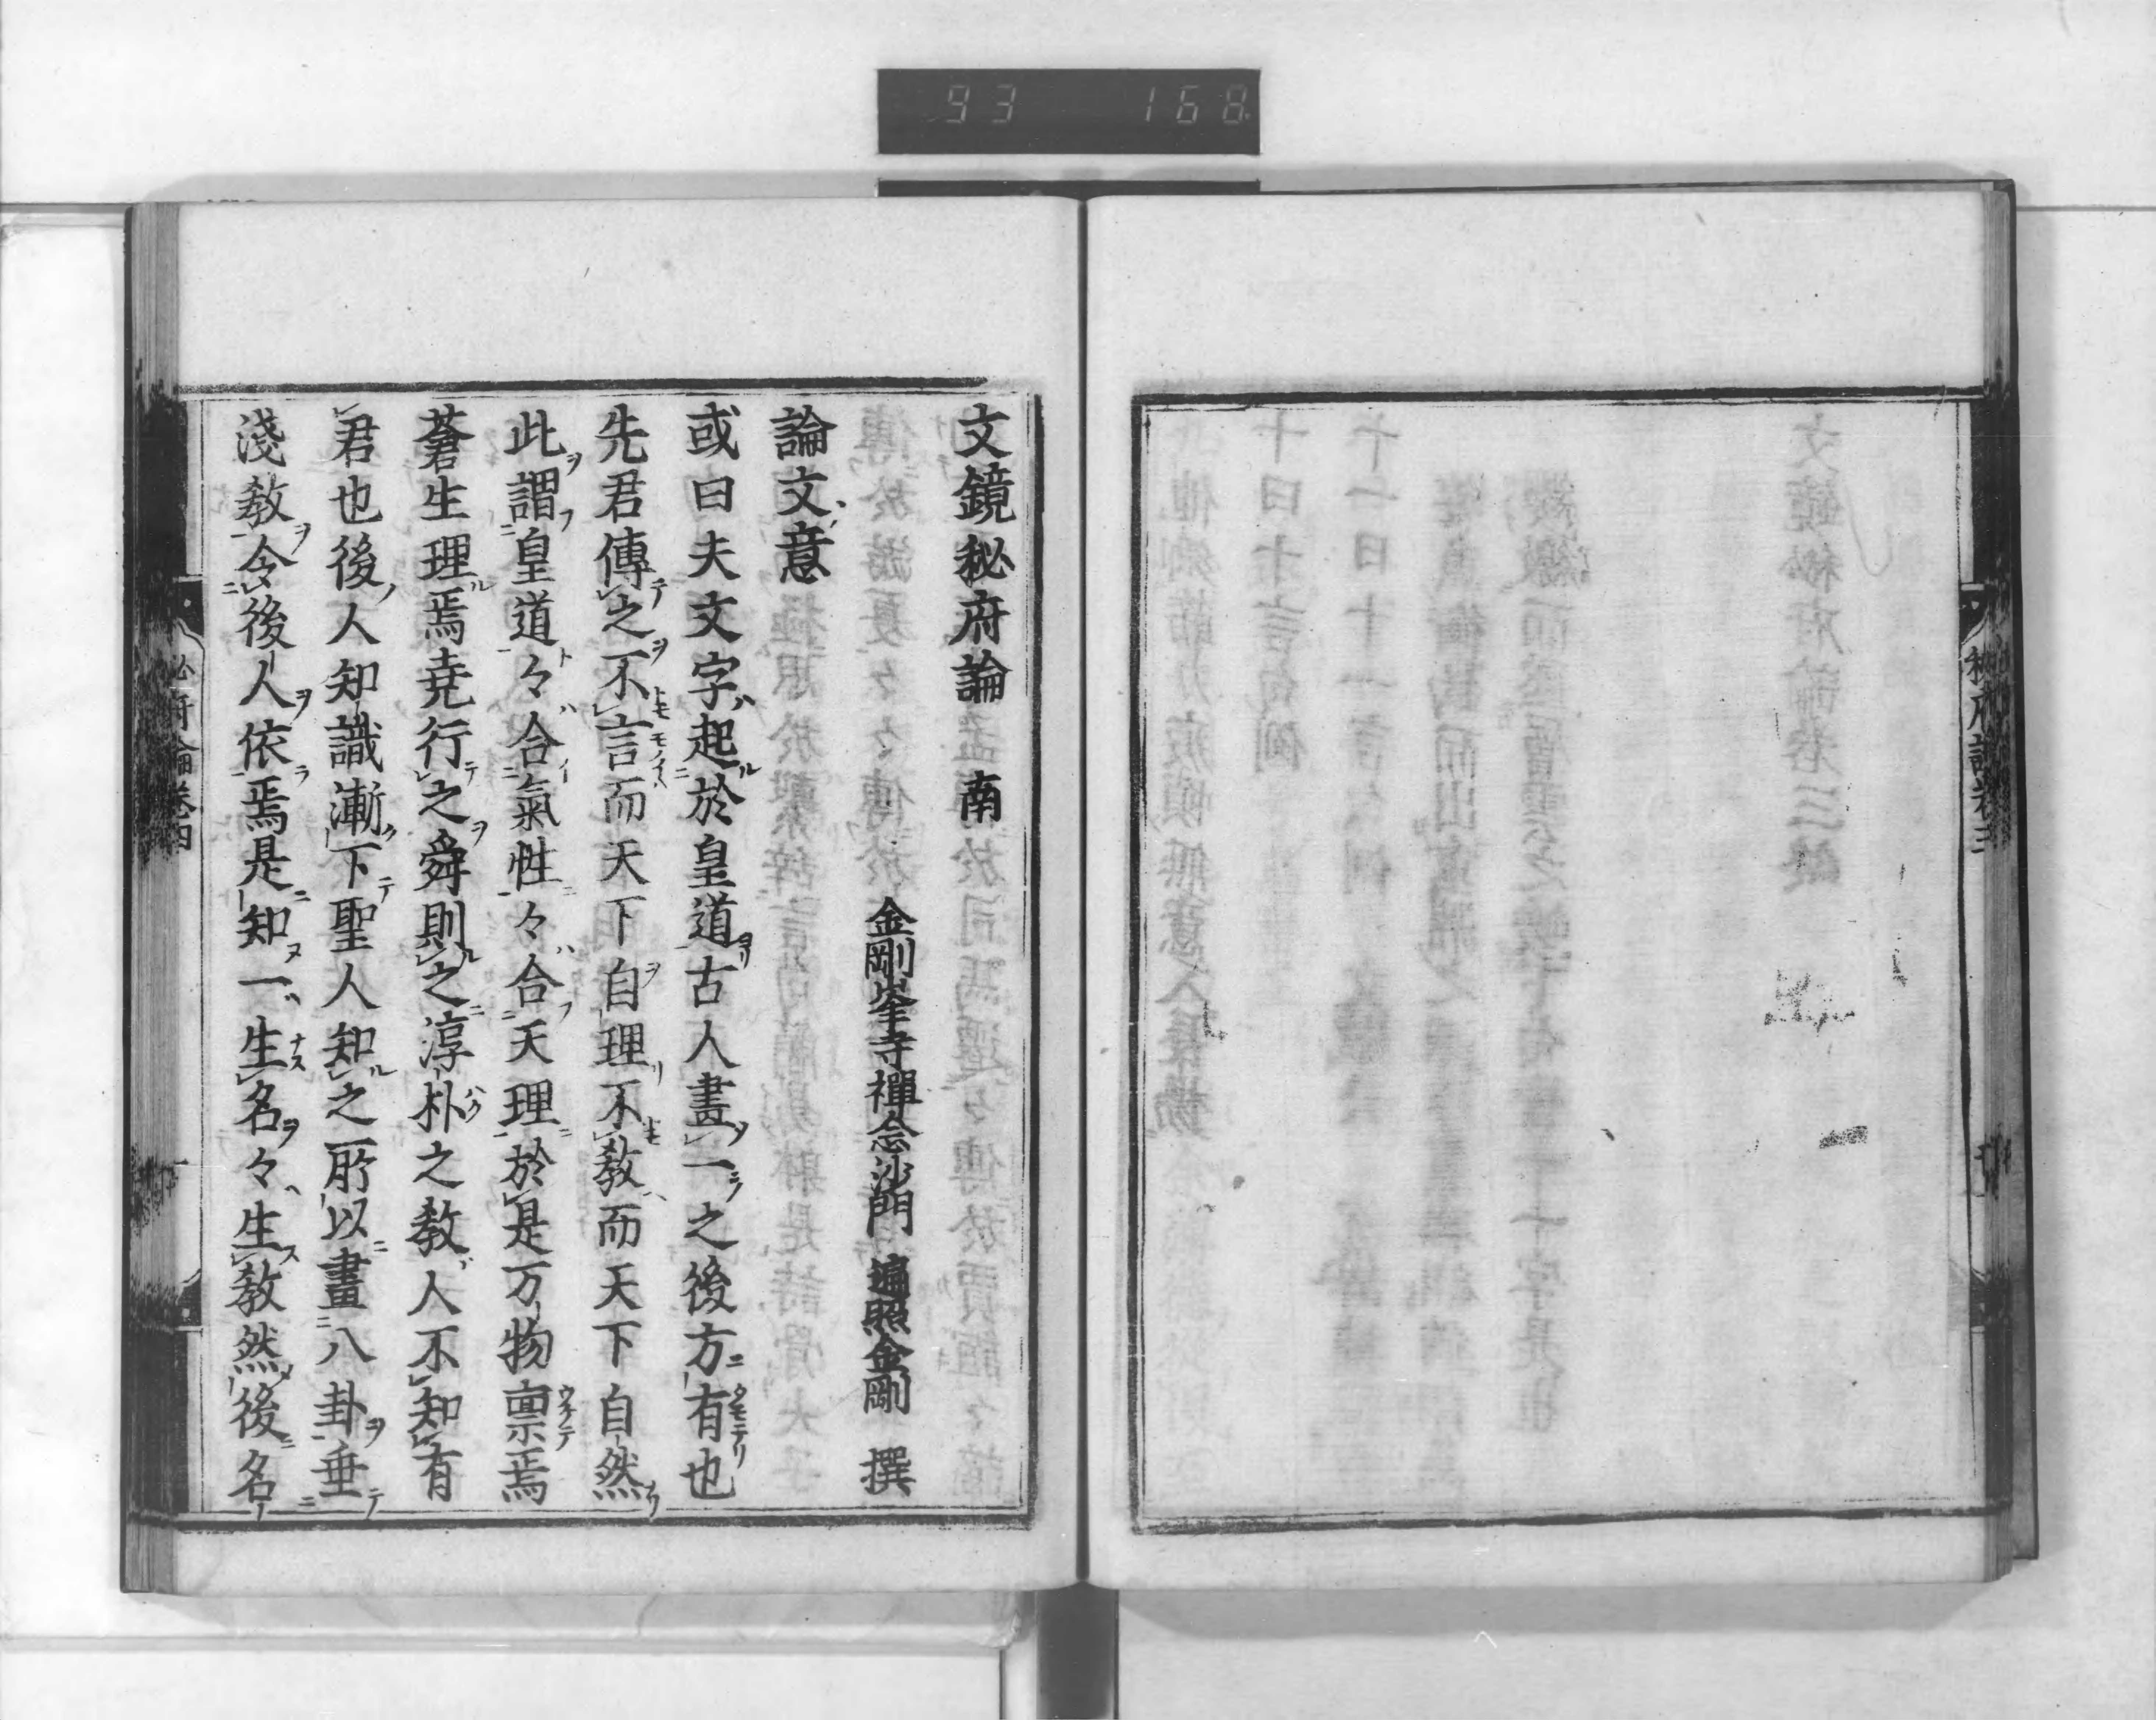 93 168
秘府論卷三
文鏡秘府論 南
金剛峯寺禪念沙門 遍照金剛 撰
論文意
或曰夫文字起於皇道古人畫一之後方有也
先君傳之不言而天下自理不教而天下自然
此謂皇道々合氣性々合天理於是万物稟焉
蒼生理焉堯行之舜則之淳朴之教人不知有
君也後人知識漸下聖人知之所以畫八卦垂
淺教令後人依焉是知一生名々生教然後名
秘府論卷四
一